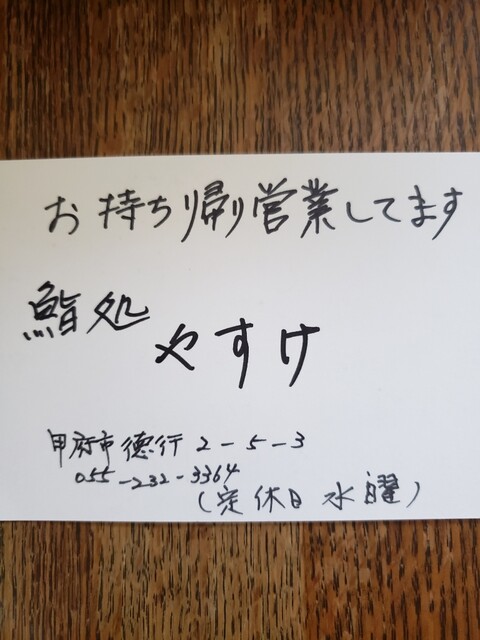 お持ち帰り営業してます
鮨処
やすけ
甲府市徳行 2-5-3
055-232-3364
(定休日 水曜)